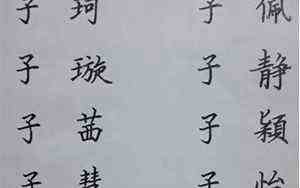 子 珂 子 佩
子 璇 子 静
子 茜 子 颖
子 慧 子 怡